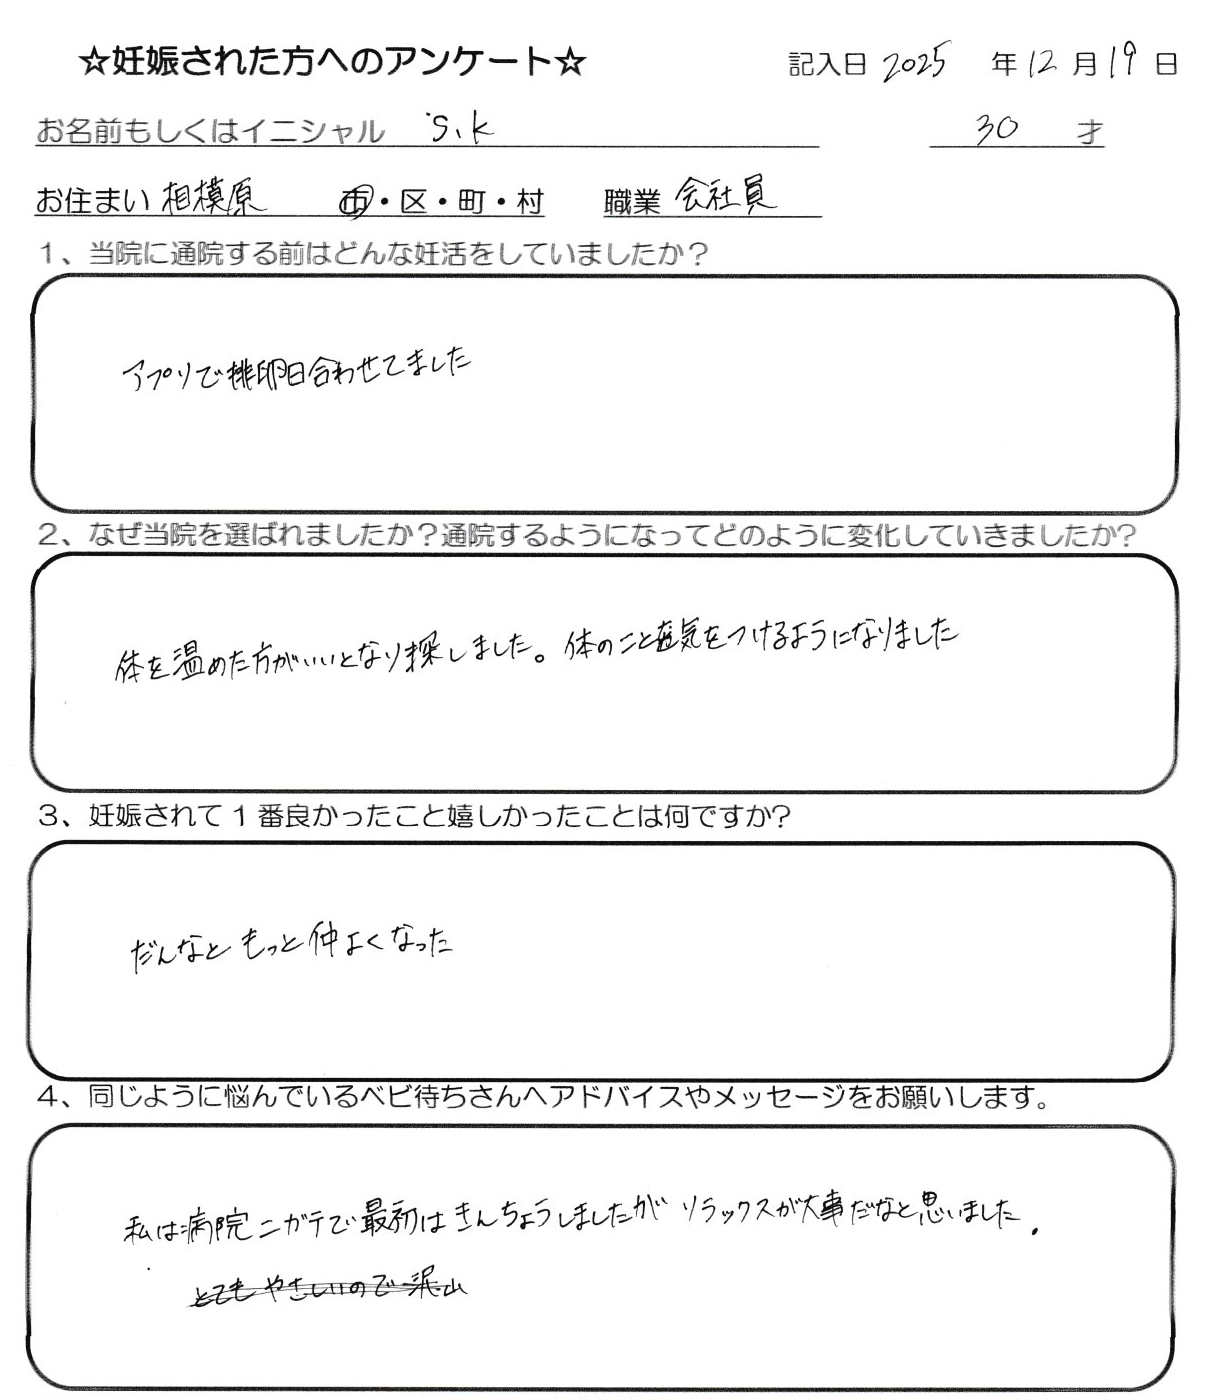 ☆妊娠された方へのアンケート☆ 記入日 2025 年 12 月 19 日
お名前もしくはイニシャル S.K 30 才
お住まい 相模原 市・区・町・村 職業 会社員
1、当院に通院する前はどんな妊活をしていましたか？
アプリで排卵日合わせてました
2、なぜ当院を選ばれましたか？通院するようになってどのように変化していきましたか？
体を温めた方がいいとなり探しました。体のこと気をつけるようになりました
3、妊娠されて1番良かったこと嬉しかったことは何ですか？
だんなともっと仲よくなった
4、同じように悩んでいるベビ待ちさんへアドバイスやメッセージをお願いします。
私は病院ニガテで最初はきんちょうしましたが リラックスが大事だなと思いました.
とてもやさしいので沢山